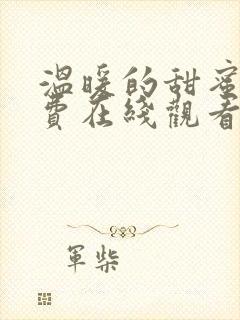 溫暖的甜蜜
費在綫觀看
軍柴